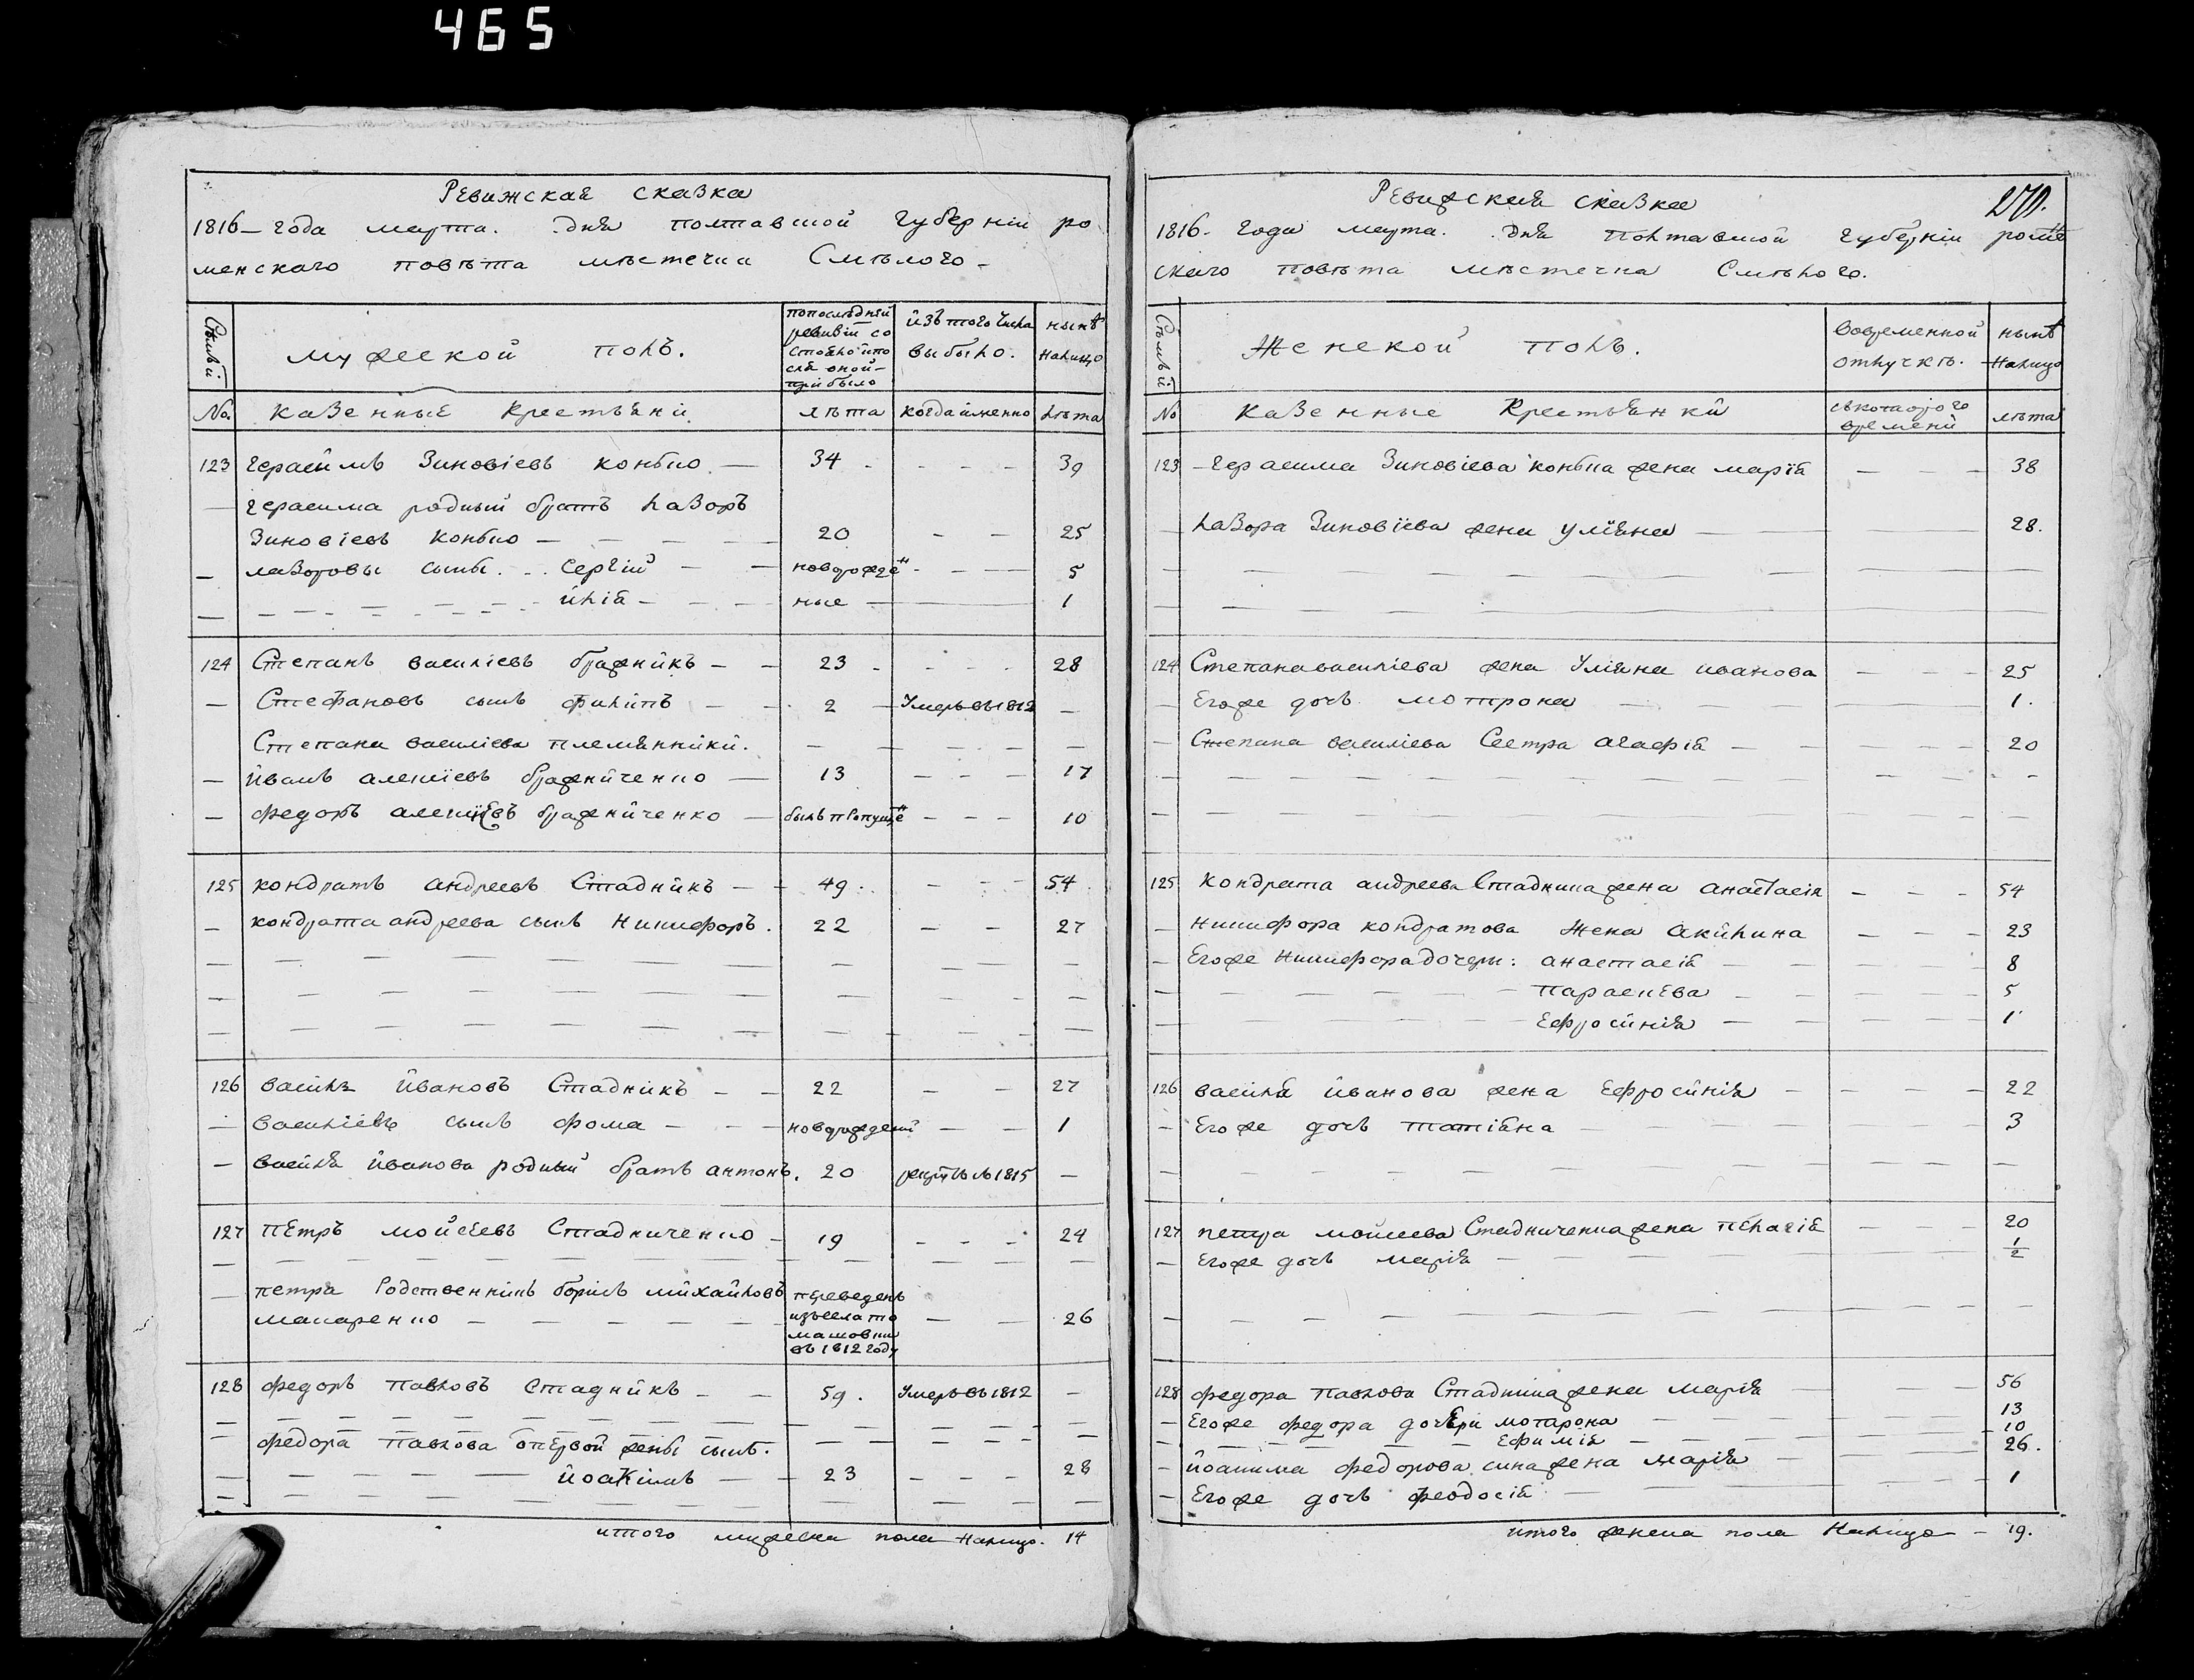 465
Ревижская сказка
1816– года марта. дня полтавской губернiи ро
менскаго повѣта мѣстечка Смѣлого–
Семьи
мужеской полъ.
попослѣдней
ревизiи со
стояло ипо
слѣ оной–
прибыло
изъ того числа
выбыло.
нынѣ
налицо
№. казенные крестьяни лѣта когда именно лѣта
123 герасимъ Зиновiевъ конбко 34 39
герасима родный братъ лазоръ
Зиновiевъ конбко 20 25
лазоровы сыны. Сергiй новорожден 5
илiя ные 1
124 Степанъ василiевъ бражникъ 23 28
Стефановъ сынъ филипъ 2 Умеръ въ 1812
Степана василiева племянники.
иванъ алексiевъ бражниченко 13 17
федоръ алексiевъ бражниченко былъ пропущен 10
125 кондратъ андреевъ Стадникъ 49. 54
кондрата андреева сынъ никифоръ. 22 27
126 василь ивановъ Стадникъ 22 27
василiевъ сынъ фома новорожденный 1
василя иванова родный братъ антонъ. 20 рекрутъ въ 1815
127 петръ мойсеевъ Стадниченко 19 24
петра родственникъ борисъ михайловъ
макаренко 26
переведенъ
изъ села то
машовки
въ 1812 году
128 федоръ павловъ стадникъ 59. Умеръ въ 1812
федора павлова отпервой жены сынъ.
йоакимъ 23 28
итого мужеска пола налицо. 14
Ревижская сказка
270.
1816. года марта. дня полтавской губернiи роме
скаго повѣта мѣстечка Смѣлого.
Семьи
Женской полъ.
вовременной
отлучкѣ.
нынѣ
налицо
№ казенные крестьянки
съкоторого
времени
лѣта
123 герасима Зиновiева конбка жена марiя 38
лазора Зиновiева жена улiяна 28.
124 Степана василiева жена Улiяна иванова 25
Егоже дочь мотрона 1.
Степана василiева Сестра агафiя 20
125 кондрата андреева Стадника жена анастасiя 54
никифора кондратова жена акилина 23
Егоже никифора дочери: анастасiя 8
параскева 5
Ефросинiя 1
126 василя иванова жена Ефросинiя 22
Егоже дочь татiяна 3
127 петра мойсеева Стадниченка жена пелагiя 20
Егоже дочь марiя 1/2
128 федора павлова Стадника жена марiя 56
Егоже федора дочери мотарона 13
Ефимiя 10
йоакима федорова сина жена марiя 26.
Егоже дочь феодосiя 1
итого женска пола налицо 19.